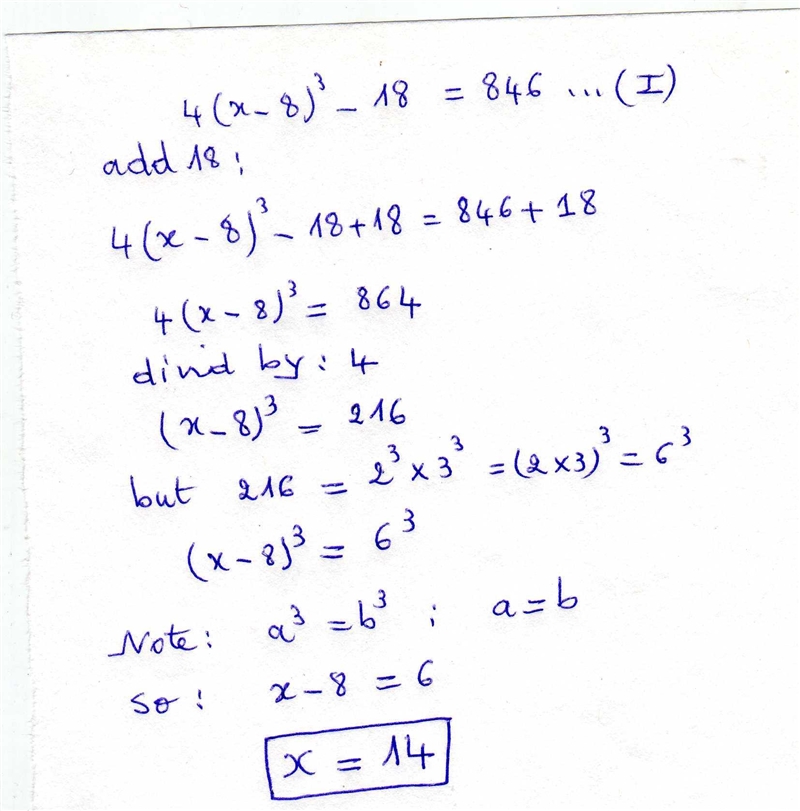 4(x-8)³ - 18 = 846 ... (I)
add 18 :
4(x-8)³ - 18+18 = 846+18
4(x-8)³ = 864
divid by : 4
(x-8)³ = 216
but 216 = 2³ × 3³ = (2×3)³ = 6³
(x-8)³ = 6³
Note : a³ = b³ ; a = b
so : x-8 = 6
x = 14